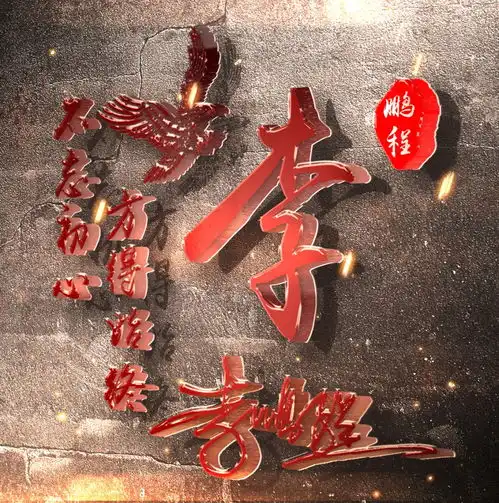 李
鹏程
不忘初心
方得始终
李鹏程